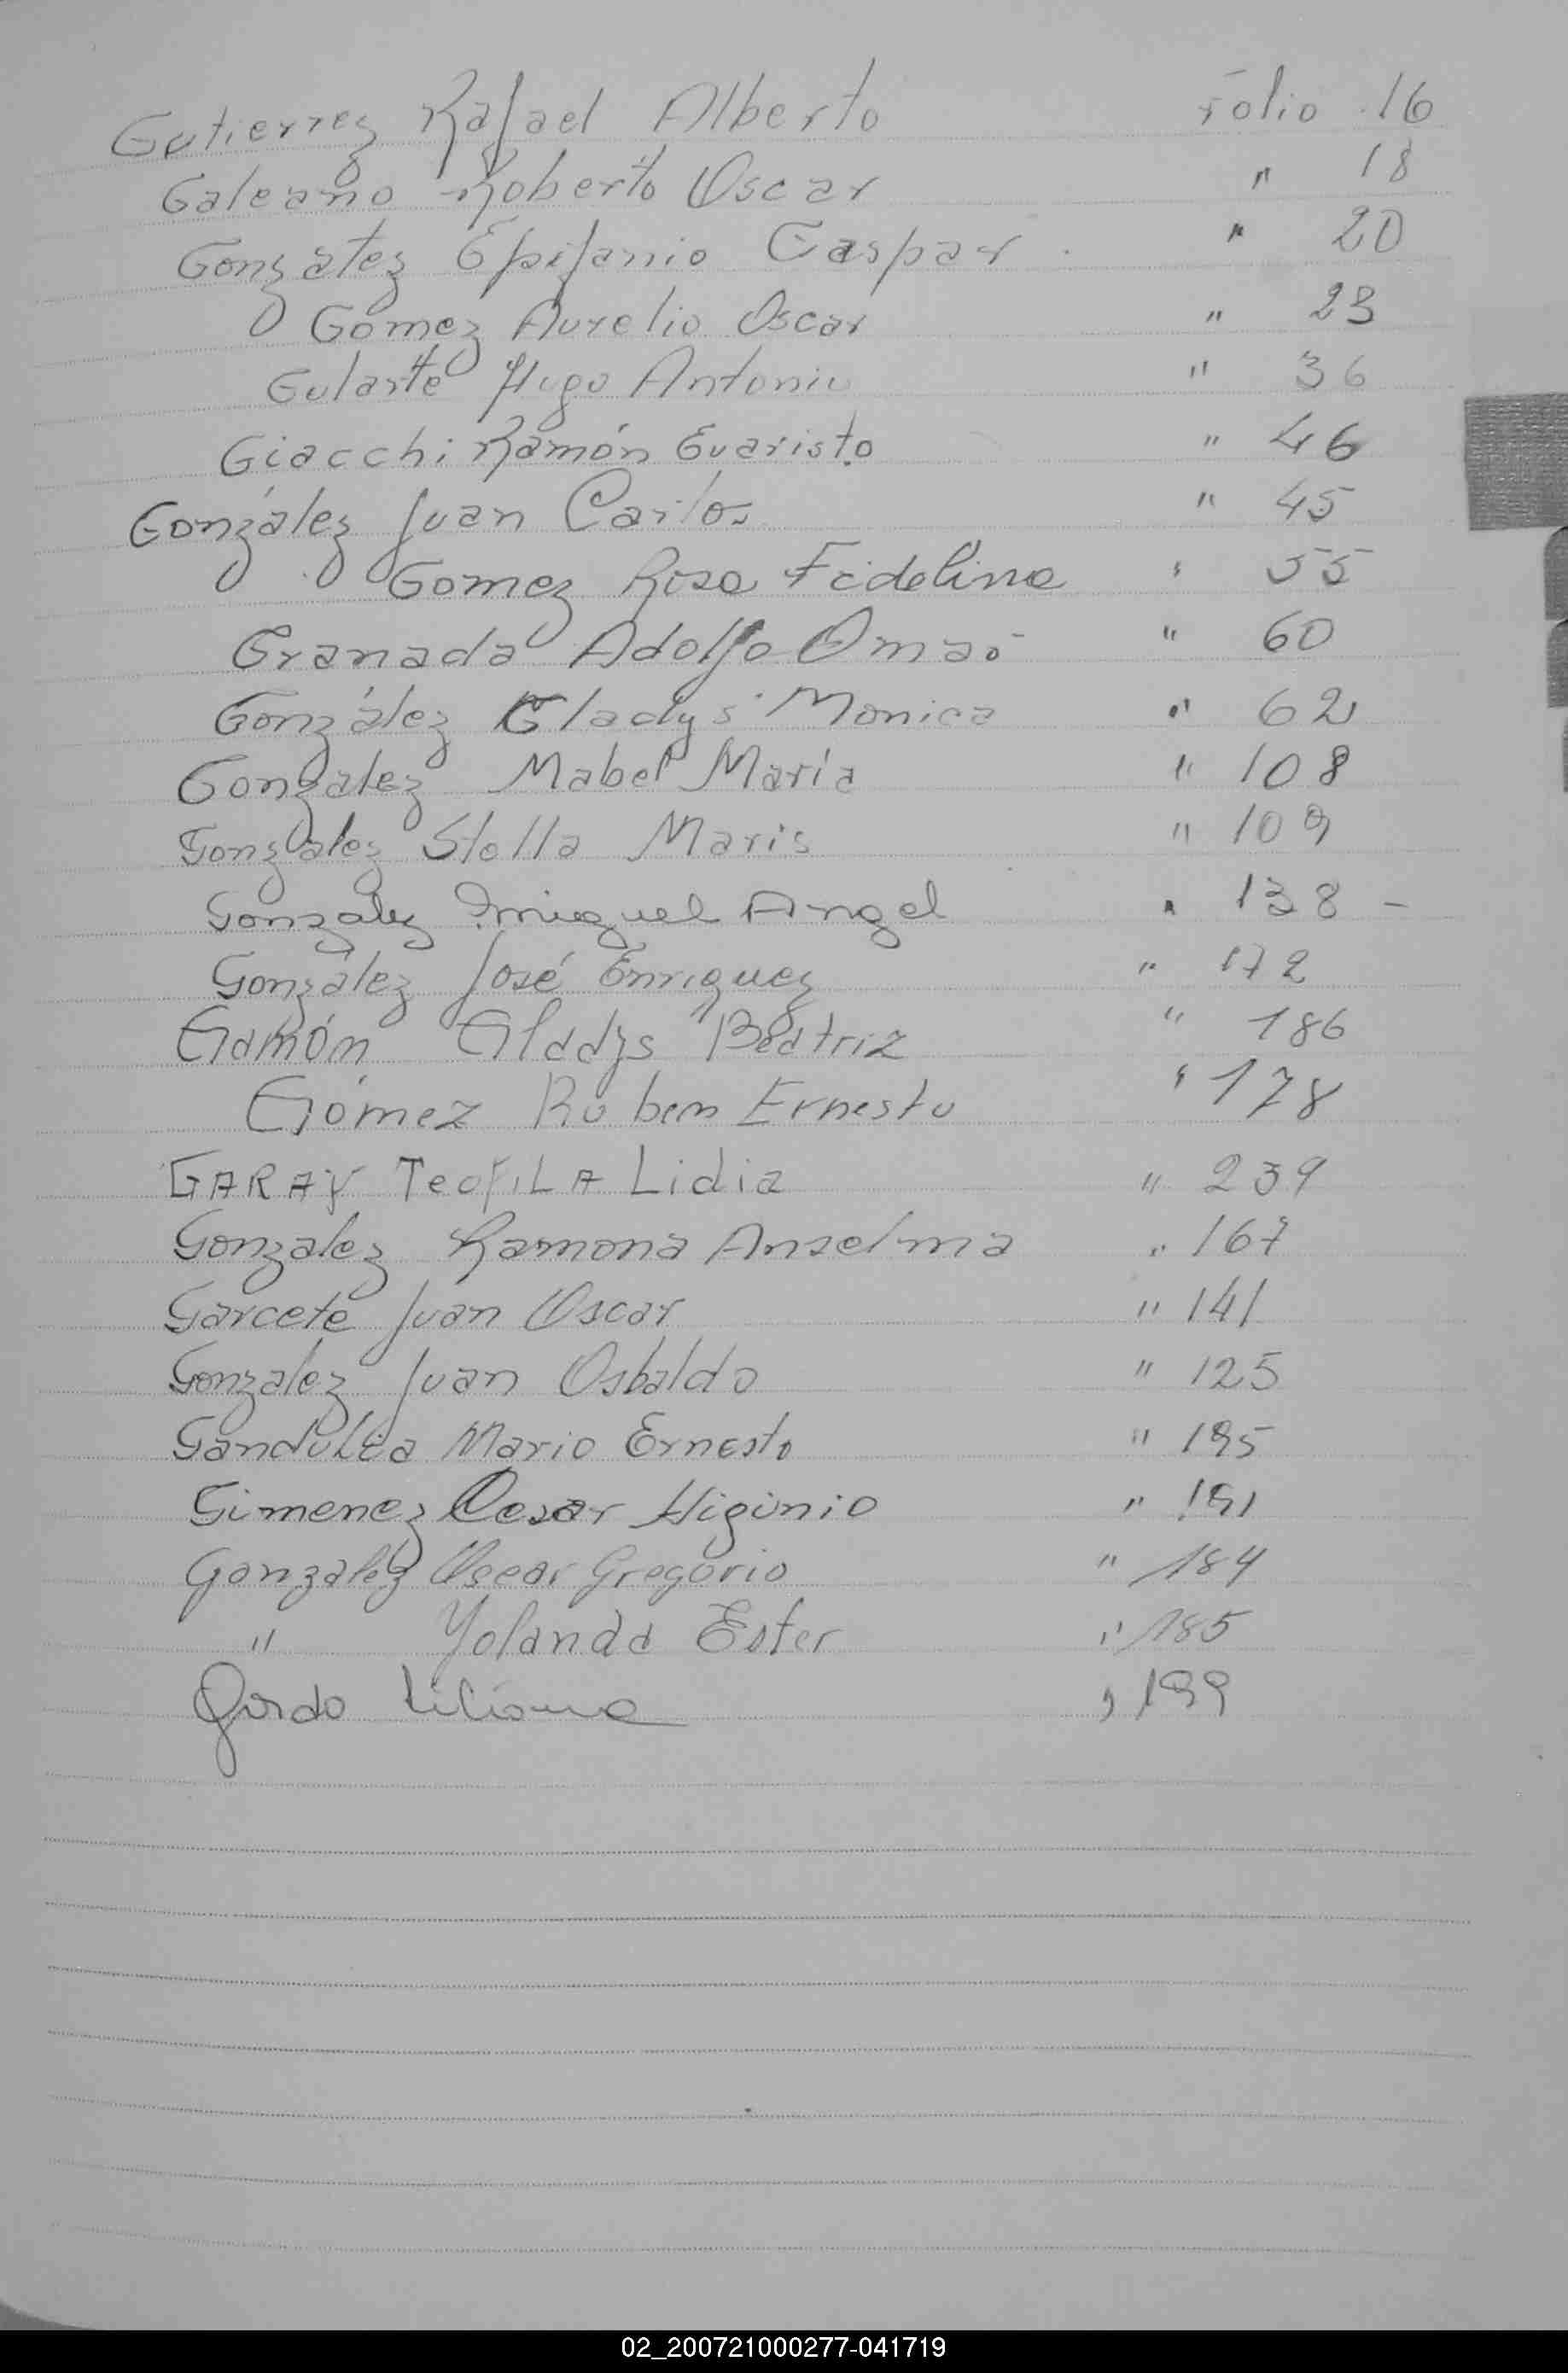 Gutierrez Rafael Alberto Folio 16
Galeano Roberto Oscar " 18
Gonzalez Epifanio Gaspar " 20
Gomez Aurelio Oscar " 23
Gularte Hugo Antonio " 36
Giacchi Ramón Evaristo " 46
González Juan Carlos " 45
Gomez Rosa Fidelina " 55
Granada Adolfo Omar " 60
González Gladys Monica " 62
Gonzalez Mabel María " 108
Gonzalez Stella Maris " 109
Gonzalez Miguel Angel " 138 -
González José Enriquez " 172
Gamón Gladys Beatriz " 186
Gómez Ruben Ernesto " 178
GARAY TeofiLA Lidia " 239
Gonzalez Ramona Anselma " 167
Garcete Juan Oscar " 141
Gonzalez Juan Osbaldo " 125
Mario Ernesto " 195
Gimenez Cesar Higinio " 191
Gonzalez Oscar Gregorio " 184
" Yolanda Ester " 185
Gordo Liliana " 199
02_200721000277-041719